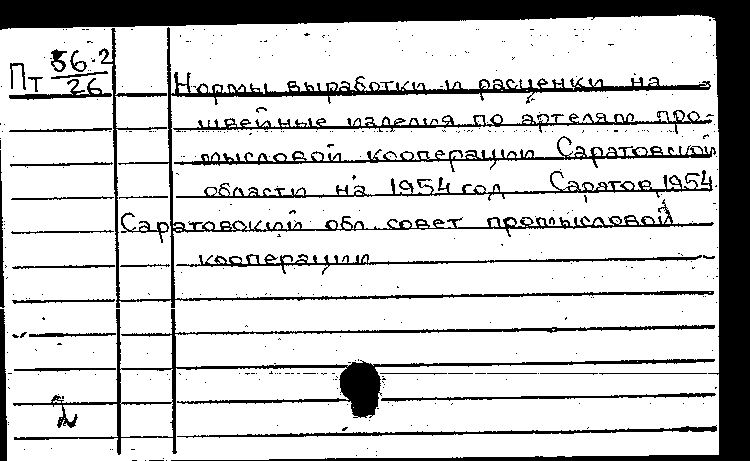 Пт 56.2
26
Нормы выработки и расценки на
швейные изделия по артелям про-
мысловой кооперации Саратовской
области на 1954 год Саратов, 1954
Саратовский обл. совет промысловой
кооперации